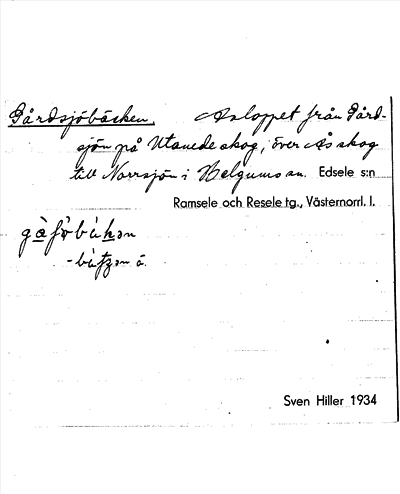 Gårdsjöbäcken. Avloppet från Gård-
sjön på Utanede skog, över Ås skog
till Norrsjön i Helgums sn. Edsele s:n
Ramsele och Resele tg., Västernorrl. l.
Sven Hiller 1934